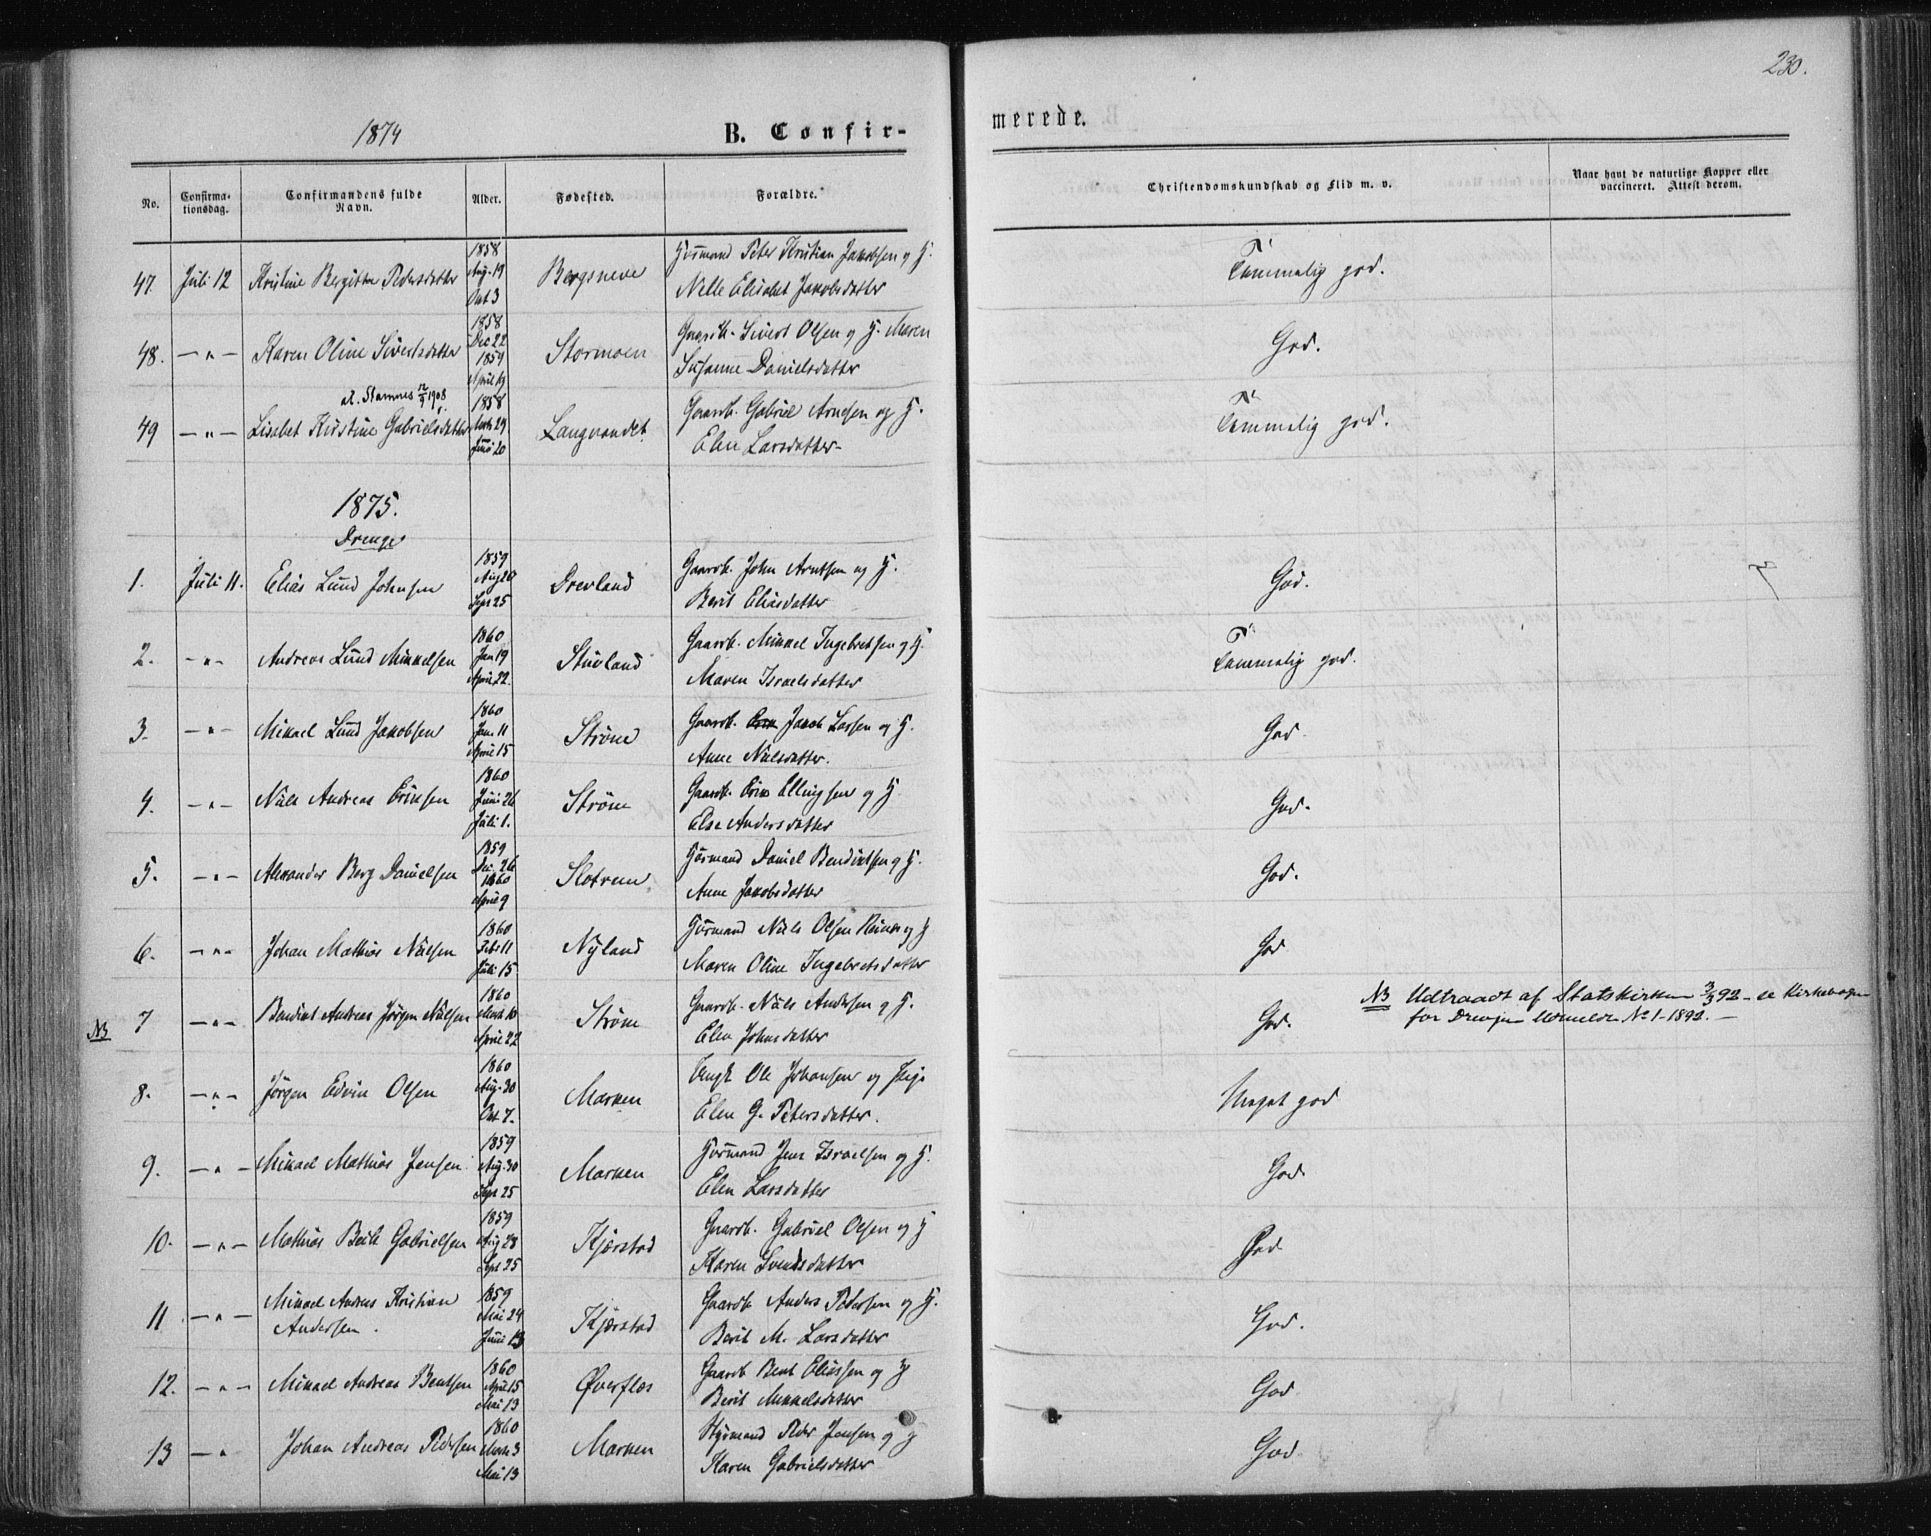 230.
1874
B. Confir-
merede.
No.
Confirma-
tionsdag.
Confirmandens fulde
Navn.
Alder.
Fødested.
Forældre.
Christendomskundskab og Flid m. v.
Naar havt de naturlige Kopper eller
vaccineret. Attest derom.
47. Juli 12 Kristine Bergitta Pedersdatter 1858 Aug. 19 Oct 3 Bergsneve Huusmand Peter Kristian Jakobsen og H. Nelle Elisabet Jakobsdatter
Temmelig god.
48. — " — Karen Oline Sivertsdatter 1858 Dec 22 1859 April 19 Stormoen Gaardb. Sivert Olsen og H. Maren Susanne Danielsdatter
God.
49 — " — Lisabet Kirstine Gabrielsdatter 1858 Juni 20 Langvandet Gaardb. Gabriel Arntsen og H. Elen Larsdatter
Temmelig god.
1875.
Drenge
1. Juli 11. Elias Lund Johnsen 1859 Aug 20 Sept 25 Drevland Gaardb. John Arntsen og H. Berit Eliasdatter
God.
2. — " — Andreas Lund Mikkelsen 1860 Jan 19 April 22. Stuvland Gaardb. Mikkel Ingebretsen og H. Maren Israelsdatter
Temmelig god.
3. — " — Mikael Lund Jakobsen 1860 Jan 11 April 15 Strøm Gaardb. Jakob Larsen og H. Anne Nilsdatter.
God.
4. — " — Nils Andreas Eriksen 1860 Juni 26 Juli 1. Strøm Gaardb. Erik Ellingsen og H. Else Andersdatter
God.
5. — " — Alexander Berg Danielsen 1859 Dec. 26 1860 April 9 Slotrem Huusmand Daniel Bendiktsen og H. Anne Jakobsdatter
God.
6. — " — Johan Mathias Nilsen 1860 Febr 11 Juli 15 Nyland Huusmand Nils Olsen og H Maren Oline Ingebretsdatter
God
NB 7 — " — Bendikt Andreas Jørgen Nilsen 1860 Marts 10 April 22 Strøm Gaardb. Nils Andersen og H. Elen Johnsdatter
God.
NB Udtraadt af Statskirken 3/3 92 — se Kirkebogen
for Drevjen Udmeldte No 1 - 1892. —
8. — " — Jørgen Edvin Olsen 1860 Aug. 30 Oct 7. Marken Ungk Ole Johansen og Pige Elen G. Petersdatter.
Meget god
9. — " — Mikael Mathias Jensen 1859 Aug. 30 Sept 25 Marken Huusmand Jens Israelsen og H. Elen Larsdatter
God
10. — " — Mathias Gabrielsen 1859 Aug 28 Sept 25 Kjærstad Gaardb. Gabriel Olsen og H Karen Svendsdatter
God
11 — " — Mikael Andreas Kristian Andersen. 1859 Mai 24 Juni 13 Kjærstad Gaardb Anders Pedersen og H. Berit M. Larsdatter
God.
12. — " — Mikael Andreas Bentsen 1860 April 15 Mai 13 Øverflos Gaardb Bent Eliassen og H Berit Mikkelsdatter
God
13 — " Johan Andreas Pedersen 1860 Marts 3 Mai 13 Marken Husmand Peder Jensen og H Karen Gabrielsdatter
God